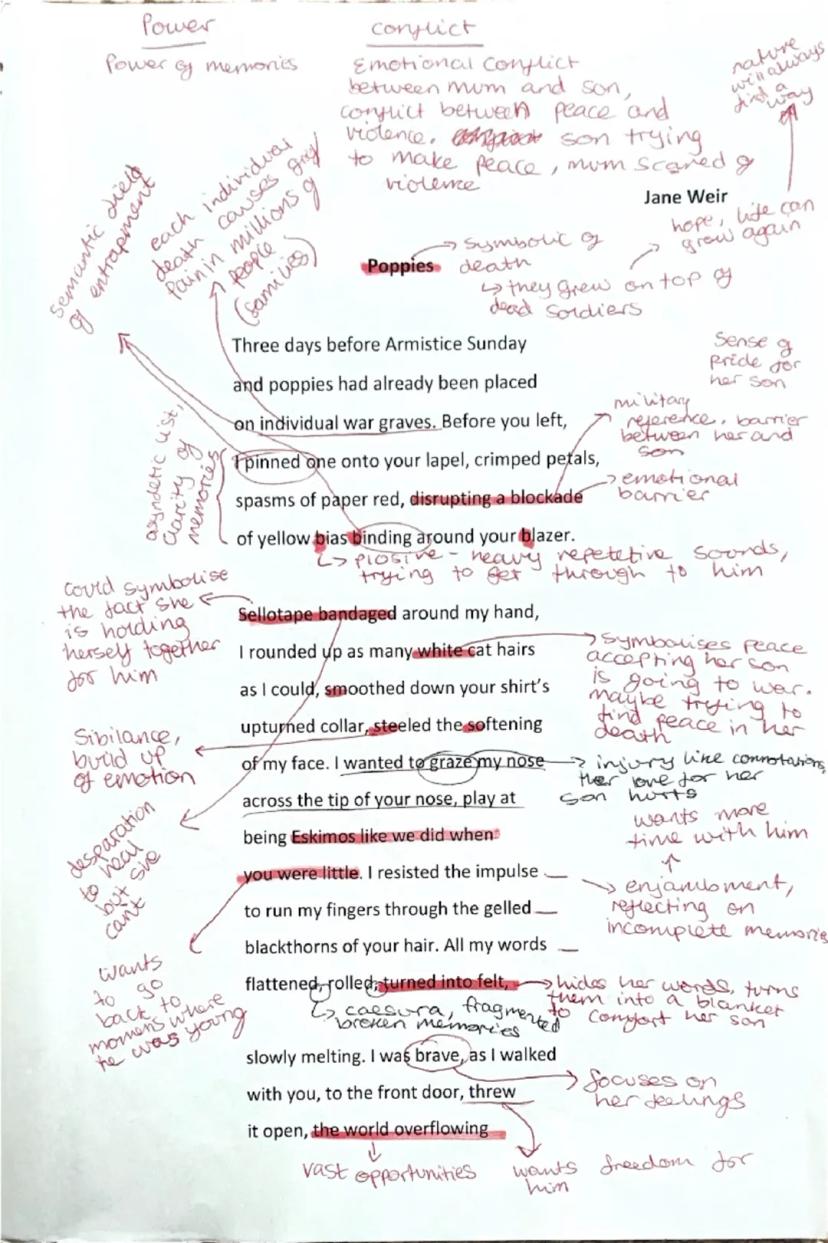 Power
Power of memories
Conflict
Emotional Conflict
between mum and son,
conflict between peace and
violence. son trying
to make peace, mum scared of
violence
nature
will always
find a
way
Jane Weir
hope, life can
grow again
Poppies
symbolic of
death
↳ they grew on top of
dead soldiers
semantic field
of entrapment
each individual
death causes
pain in millions of
people
(families)
Three days before Armistice Sunday
and poppies had already been placed
on individual war graves. Before you left,
I pinned one onto your lapel, crimped petals,
spasms of paper red, disrupting a blockade
of yellow bias binding around your blazer.
Sense of
pride for
her son
military
reference, barrier
between her and
son
emotional
barrier
asyndetic list,
clarity of
memories
↳ plosive - heavy repetetive sounds,
trying to get through to him
Sellotape bandaged around my hand,
I rounded up as many white cat hairs
as I could, smoothed down your shirt's
upturned collar, steeled the softening
of my face. I wanted to graze my nose
across the tip of your nose, play at
being Eskimos like we did when
you were little. I resisted the impulse
to run my fingers through the gelled
blackthorns of your hair. All my words
flattened, rolled, turned into felt,
could symbolise
the fact she
is holding
herself together
for him
symbolises peace
accepting her son
is going to war.
maybe trying to
find peace in her
death
Sibilance,
build up
of emotion
injury like connotations,
her love for her
son hurts
desparation
to heal
but she
can't
wants more
time with him
enjambment,
reflecting on
incomplete memories
wants
to go
back to
momens where
he was young
hides her words, turns
them into a blanket
to comfort her son
↳ caesura, fragmented
broken memories
slowly melting. I was brave, as I walked
with you, to the front door, threw
it open, the world overflowing
focuses on
her feelings
vast opportunities
wants freedom for
him